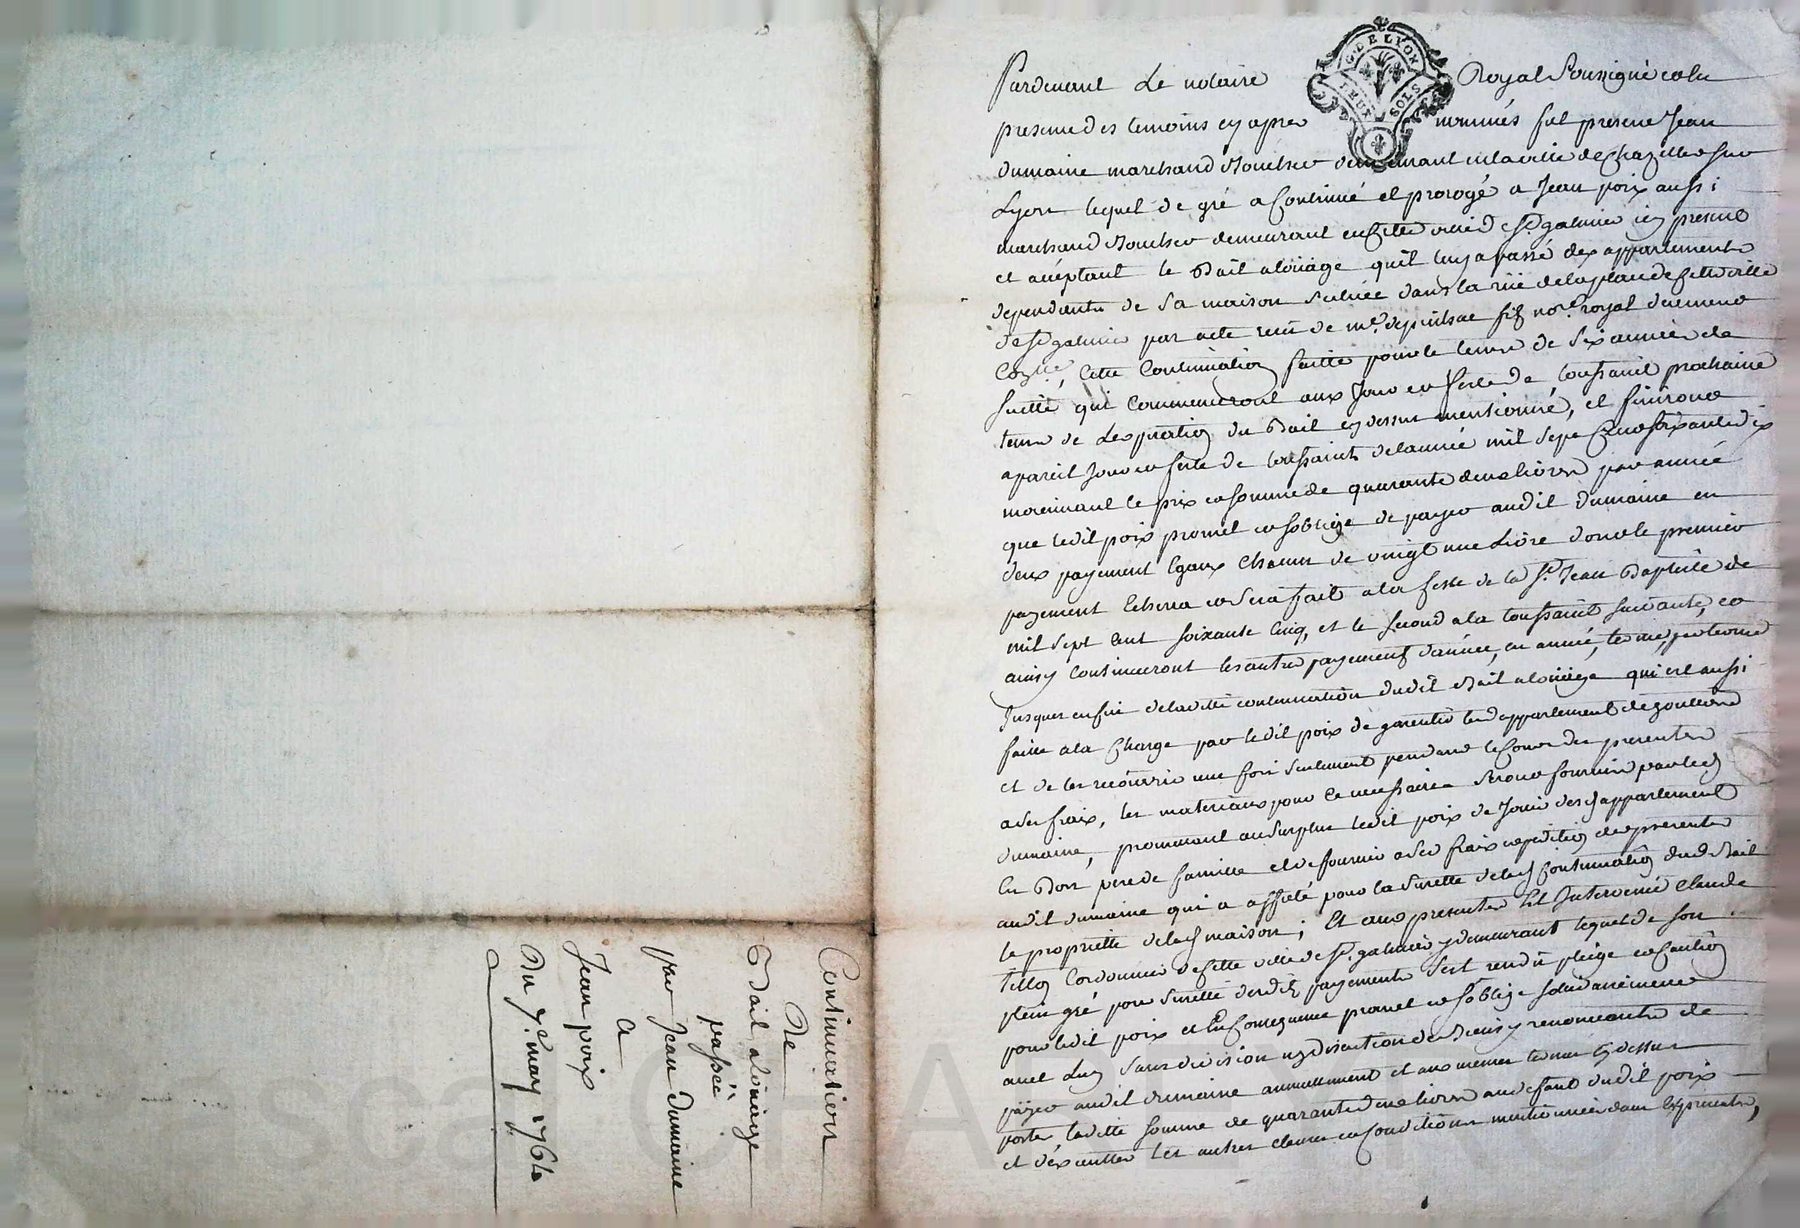 G. DE LYON
DEUX SOLS
Pardevant Le notaire Royal Soussigné et en
presence des temoins cy apres nommés fut present Jean
dumaine marchand Boucher demeurant en la ville de Chazelles sur
Lyon lequel de gré a Continué et prorogé a Jean poix aussi
marchand Boucher demeurant en cette ville de St. galmier icy present
et acéptant le Bail a loüage quil luy a passé des appartements
dependants de Sa maison Scituée dans la rüe de la place de cette ville
de St galmier par acte recu de me. depinhac fils nore. royal duement
Cozllé, Cette Continuation faitte pour le terme de Six années de
suitte qui Commenceront aux Jour et feste de toussaint prochaine
terme de Lexpiration du Bail cy dessus mentionné, et finirons
a pareil Jour et feste de toussaints de lannée mil Sept Cent soixante dix
moiennant le prix et somme de quarante deux livres par année
que ledit poix promet et soblige de payer audit dumaine en
deux payement Egaux Chacun de vingt une Livre dont le premier
payement Echerra et Sera fait a la feste de la St. Jean Baptiste de
mil Sept cent soixante Cinq, et le second a la toussaint suivante, et
ainsy Continueront les autres payements dannée, en année, terme, par terme
Jusques en fin de la ditte continuation dudit Bail a loüage qui est aussi
faitte a la Charge par ledit poix de garentir lesd appartement de goutieres
et de les recouvrir une fois seulement pendant le Cours des presentes
a ses fraix, les materiaux pour ce necessaires Seront fournis par led
dumaine, promettant au Surplus ledit poix de Jouir desd appartement
En Bon pere de famille et de fournir a Ses fraix expedition des presentes
audit dumaine qui a affecté pour la Surette de lad Continuation dud Bail
la proprieté de lad maison; Et aux presentes Est Intervenü Claude
tillon Cordonnier de cette ville de St. galmier y demeurant lequel de son
plein gré pour Sureté desdits payements S'est rendü pleige et Caution
pour ledit poix et En Consequence promet et soblige solidairement
avec Luy Sans division ny discution de Biens y renonceants de
payer audit dumaine annuellement et aux memes termes cy dessus
portés laditte somme de quarante deux livres au deffaut dudit poix
et d'éxecutter les autres clauses et Conditions mentionnées dans les presentes,
Continuation
De
Bail a loüage
passée
par Jean Dumaine
a
Jean poix
Du 7e. may 1764